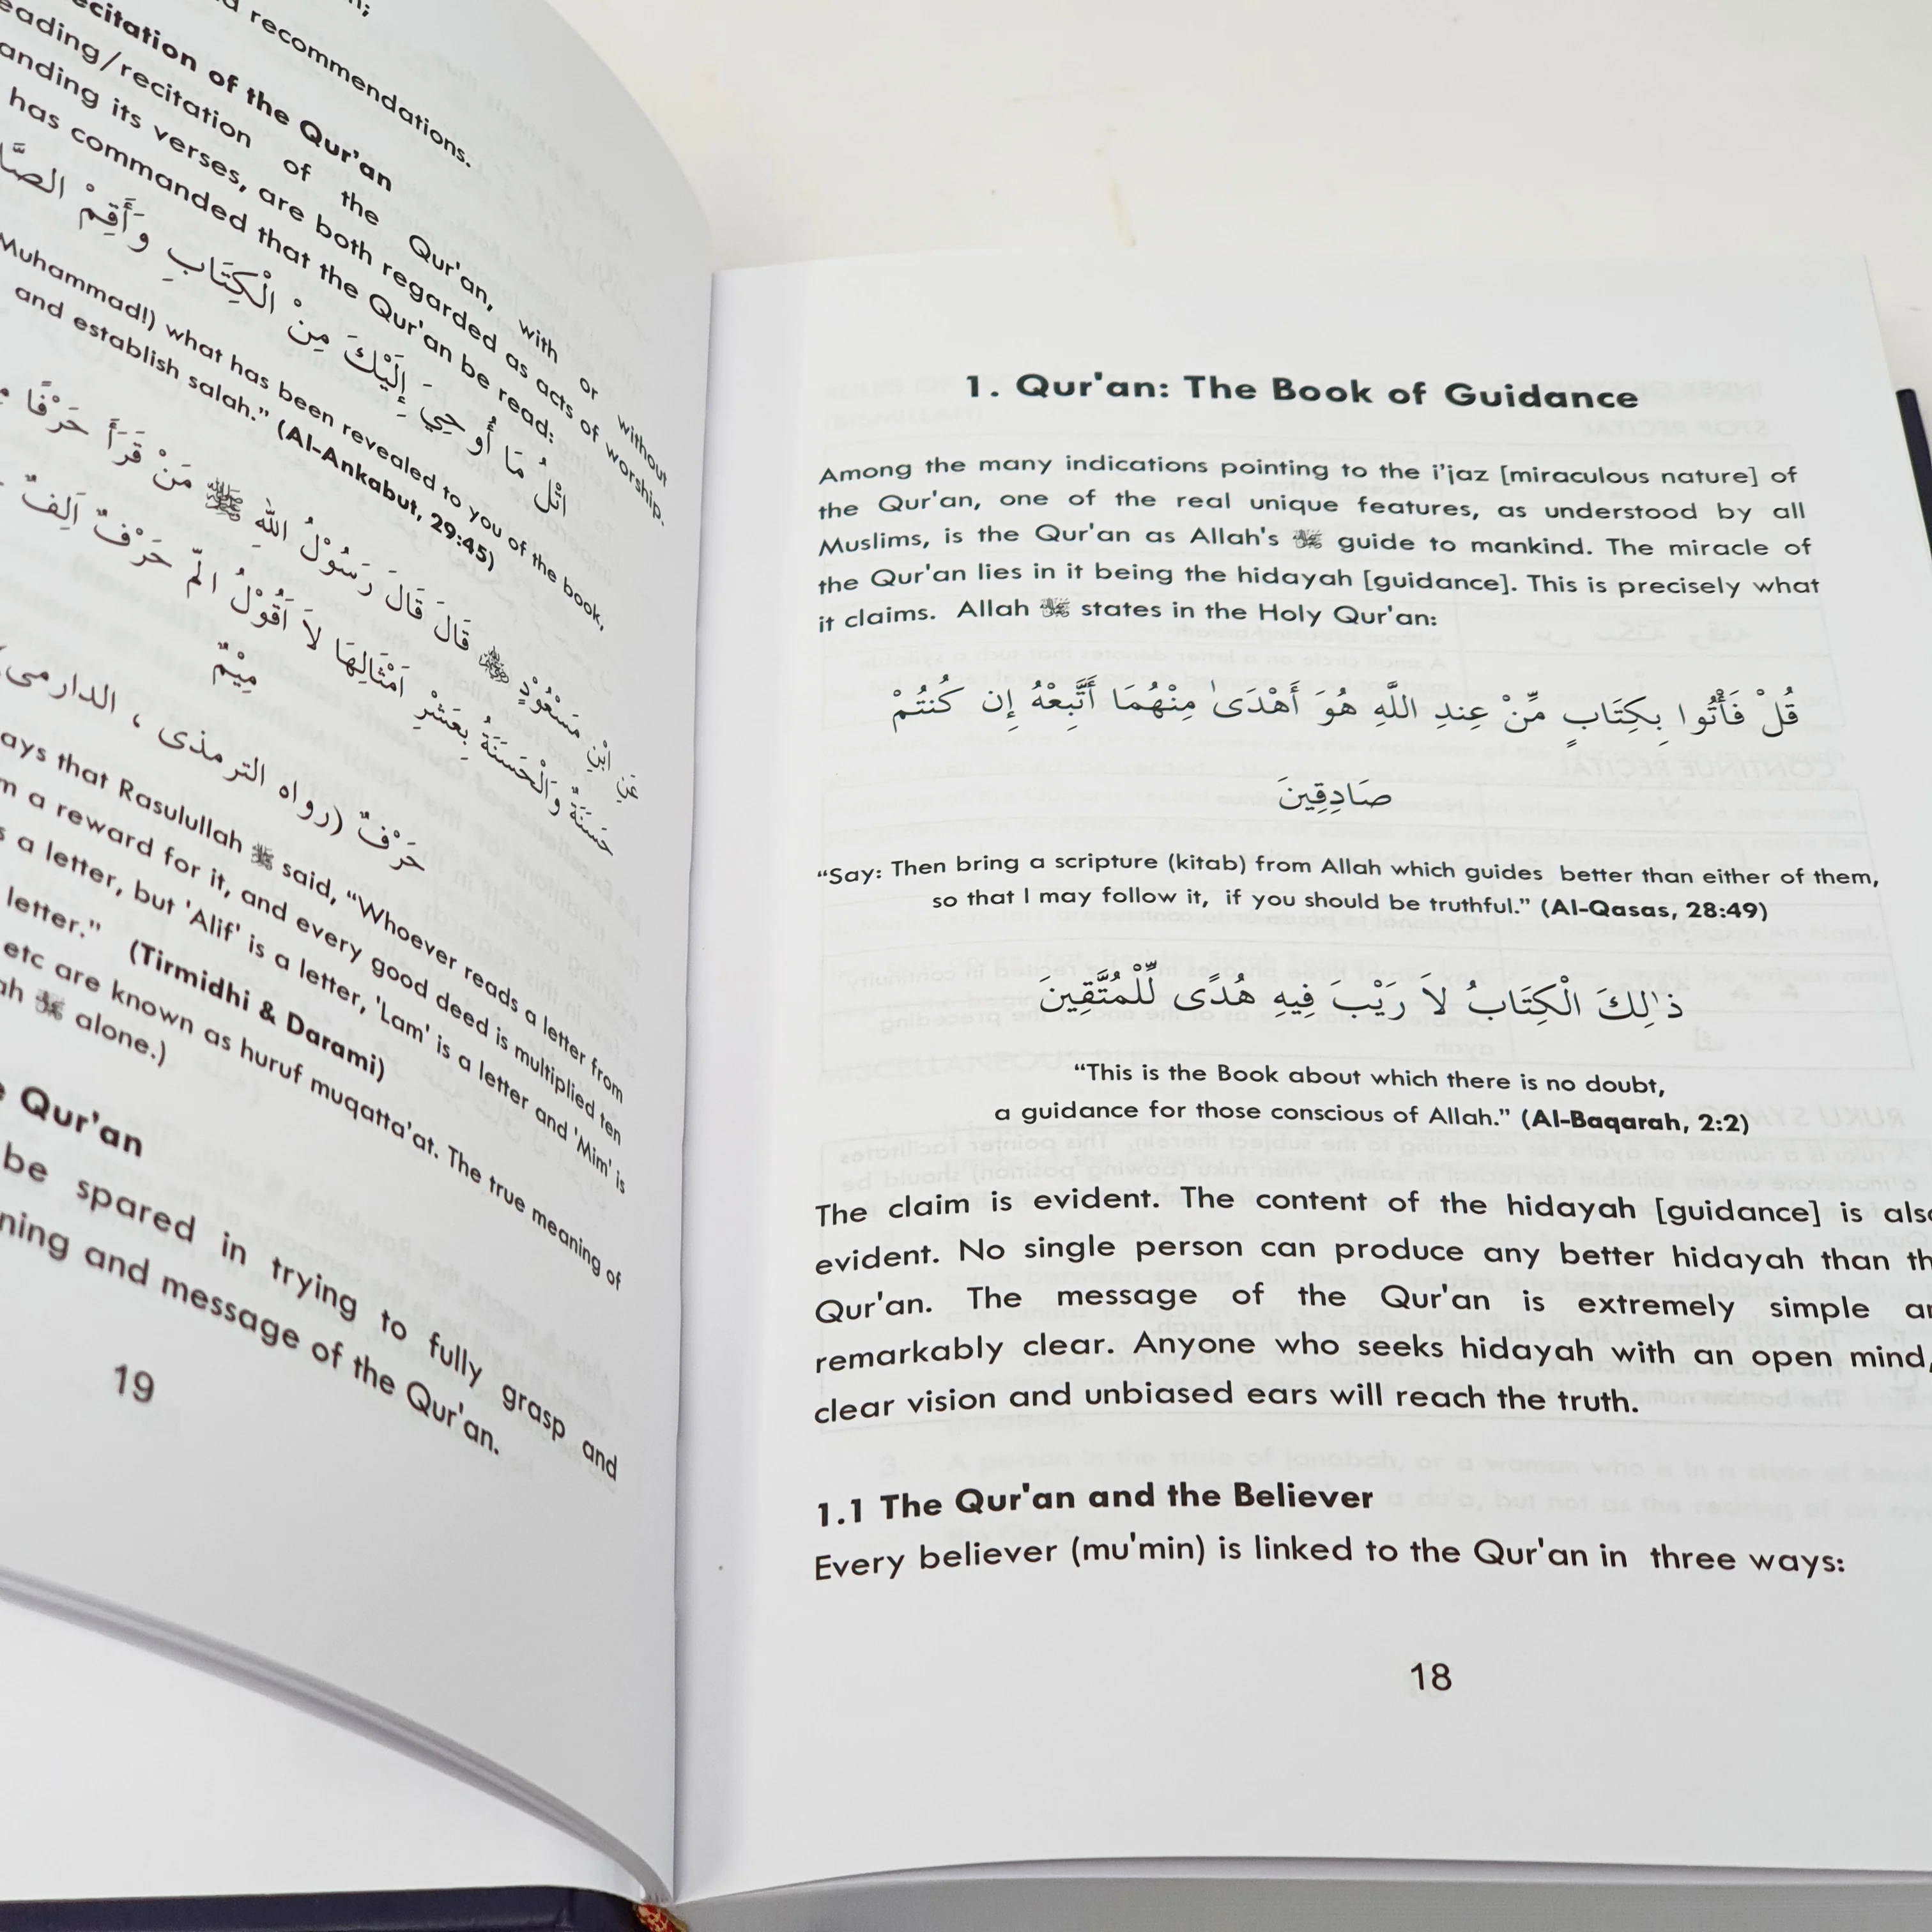 1. Qur'an: The Book of Guidance
Among the many indications pointing to the i'jaz [miraculous nature] of
the Qur'an, one of the real unique features, as understood by all
Muslims, is the Qur'an as Allah's ﷻ guide to mankind. The miracle of
the Qur'an lies in it being the hidayah [guidance]. This is precisely what
it claims. Allah ﷻ states in the Holy Qur'an:
قُلْ فَأْتُوا بِكِتَابٍ مِّنْ عِندِ اللَّهِ هُوَ أَهْدَىٰ مِنْهُمَا أَتَّبِعْهُ إِن كُنتُمْ
صَادِقِينَ
“Say: Then bring a scripture (kitab) from Allah which guides better than either of them,
so that I may follow it, if you should be truthful.” (Al-Qasas, 28:49)
ذَٰلِكَ الْكِتَابُ لَا رَيْبَ فِيهِ هُدًى لِّلْمُتَّقِينَ
“This is the Book about which there is no doubt,
a guidance for those conscious of Allah.” (Al-Baqarah, 2:2)
The claim is evident. The content of the hidayah [guidance] is
evident. No single person can produce any better hidayah than
Qur'an. The message of the Qur'an is extremely simple
remarkably clear. Anyone who seeks hidayah with an open mind,
clear vision and unbiased ears will reach the truth.
1.1 The Qur'an and the Believer
Every believer (mu'min) is linked to the Qur'an in three ways:
18
recommendations.
of the Qur'an
of the Qur'an, with or without
its verses, are both regarded as acts of worship.
has commanded that the Qur'an be read:
اتْلُ مَا أُوحِيَ إِلَيْكَ مِنَ الْكِتَابِ وَأَقِمْ
Muhammad!) what has been revealed to you of the book,
and establish salah.” (Al-Ankabut, 29:45)
عَنِ ابْنِ مَسْعُوْدٍ قَالَ قَالَ رَسُوْلُ اللهِ ﷺ مَنْ قَرَأَ حَرْفًا
حَسَنَةٌ وَالْحَسَنَةُ بِعَشْرِ اَمْثَالِهَا لاَ اَقُوْلُ الٓمّ حَرْفٌ اَلِفٌ
مِيْمٌ
حَرْفٌ (رواه الترمذى ، الدارمى)
that Rasulullah ﷺ said, “Whoever reads a letter from
a reward for it, and every good deed is multiplied ten
a letter, but 'Alif' is a letter, 'Lam' is a letter and 'Mim' is
letter.” (Tirmidhi & Darami)
etc are known as huruf muqatta'at. The true meaning of
ﷻ alone.)
Qur'an
be spared in trying to fully grasp and
and message of the Qur'an.
19